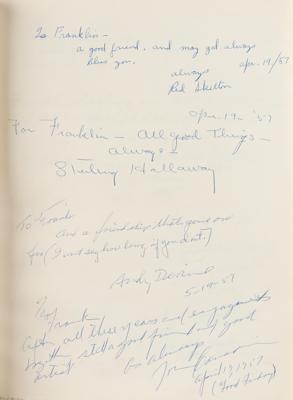 To Franklin -
a good friend. and may god always
bless you.
apr. 19/57
always
Red Skelton
Apr. 19 - '57
For Franklin - All good Things -
always -
Sterling Holloway
To Frank
and a friendship that goes on
for (I wont say how long if you dont.)
Andy Devine
5-19-57
To Frank
After all these years and engagements
still a good friend and good
artist
As always,
April 19, 1957
(Good Friday)